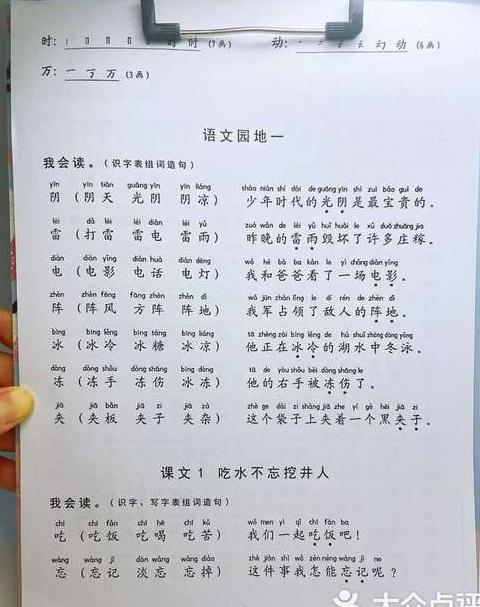 时：丨 冂 日 日 旪 时 时（7画） 动：一 二 テ 云 幻 动（6画）
万：一 丆 万（3画）
语文园地一
我会读。（识字表组词造句）
yīn yīn tiān guāng yīn yīn liáng shào nián shí dài de guāng yīn shì zuì bǎo guì de
阴（阴天 光阴 阴凉） 少年时代的光阴是最宝贵的。
léi dǎ léi léi diàn léi yǔ zuó wǎn de léi yǔ huǐ huài le xǔ duō zhuāng jia
雷（打雷 雷电 雷雨） 昨晚的雷雨毁坏了许多庄稼。
diàn diàn yǐng diàn huà diàn dēng wǒ hé bà ba kàn le yì chǎng diàn yǐng
电（电影 电话 电灯） 我和爸爸看了一场电影。
zhèn zhèn fēng fāng zhèn zhèn dì wǒ jūn zhàn lǐng le dí rén de zhèn dì
阵（阵风 方阵 阵地） 我军占领了敌人的阵地。
bīng bīng lěng bīng táng bīng liáng tā zhèng zài bīng lěng de hú shuǐ zhōng dōng yǒng
冰（冰冷 冰糖 冰凉） 他正在冰冷的湖水中冬泳。
dòng dòng shǒu dòng shāng bīng dòng tā de yòu shǒu bèi dòng shāng le
冻（冻手 冻伤 冰冻） 他的右手被冻伤了。
jiā jiā bǎn jiā zi jiā zá zhè ge dài zi shàng jiā zhe yí gè hēi jiā zi
夹（夹板 夹子 夹杂） 这个袋子上夹着一个黑夹子。
课文1 吃水不忘挖井人
我会读。（识字、写字表组词造句）
chī chī fàn chī hē chī kǔ wǒ men yì qǐ chī fàn ba
吃（吃饭 吃喝 吃苦） 我们一起吃饭吧！
wàng wàng jì dàn wàng wàng diào zhè jiàn shì wǒ zěn néng wàng jì ne
忘（忘记 淡忘 忘掉） 这件事我怎能忘记呢？
大众点评